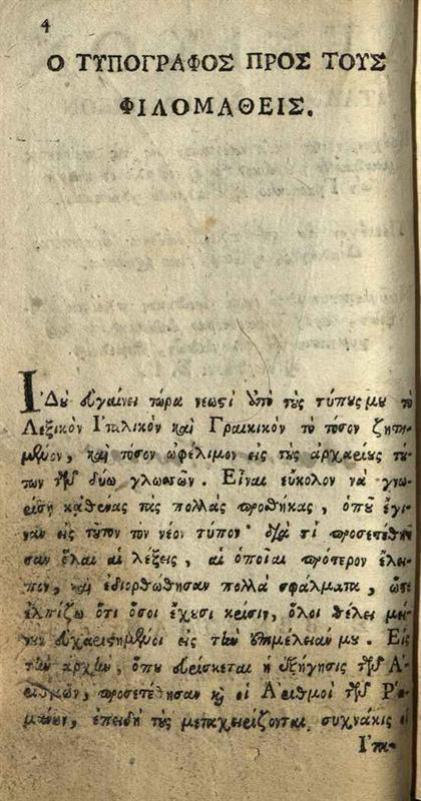 4
Ο ΤΥΠΟΓΡΑΦΟΣ ΠΡΟΣ ΤΟΥΣ
ΦΙΛΟΜΑΘΕΙΣ.
Ἰδοὺ εὐγαίνει τώρα νεωστὶ ἀπὸ τοὺς τύπους μου τὸ
Λεξικὸν Ἰταλικὸν καὶ Γραικικὸν τὸ τόσον ζητη-
μένον, καὶ τόσον ὠφέλιμον εἰς τοὺς ἀρχαρίους τού-
των τῶν δύω γλωσσῶν. Εἶναι εὔκολον νὰ γνω-
ρίσῃ καθένας τὰς πολλὰς προσθήκας, ὁποῦ ἔγι-
ναν εἰς τοῦτον τὸν νέον τύπον· διὰ τί προσετέθη-
σαν ὅλαι αἱ λέξεις, αἱ ὁποῖαι πρότερον ἔλει-
πον, καὶ ἐδιορθώθησαν πολλὰ σφάλματα, ὥστε
ἐλπίζω ὅτι ὅσοι ἔχουσι κρίσιν, ὅλοι θέλει μεί-
νουν εὐχαριστημένοι εἰς τὴν ἐπιμέλειάν μου. Εἰς
τὴν ἀρχὴν, ὅπου εὑρίσκεται ἡ ἐξήγησις τῶν Ἀ-
ριθμῶν, προσετέθησαν καὶ οἱ Ἀριθμοὶ τῶν Ῥω-
μάνων, ἐπειδὴ τοὺς μεταχειρίζονται συχνάκις οἱ
Ἰτα-